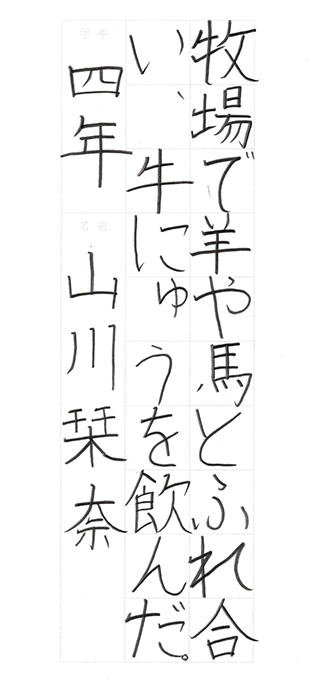 牧場で羊や馬とふれ合
い、牛にゅうを飲んだ。
学年
四年
名前
山川栞奈